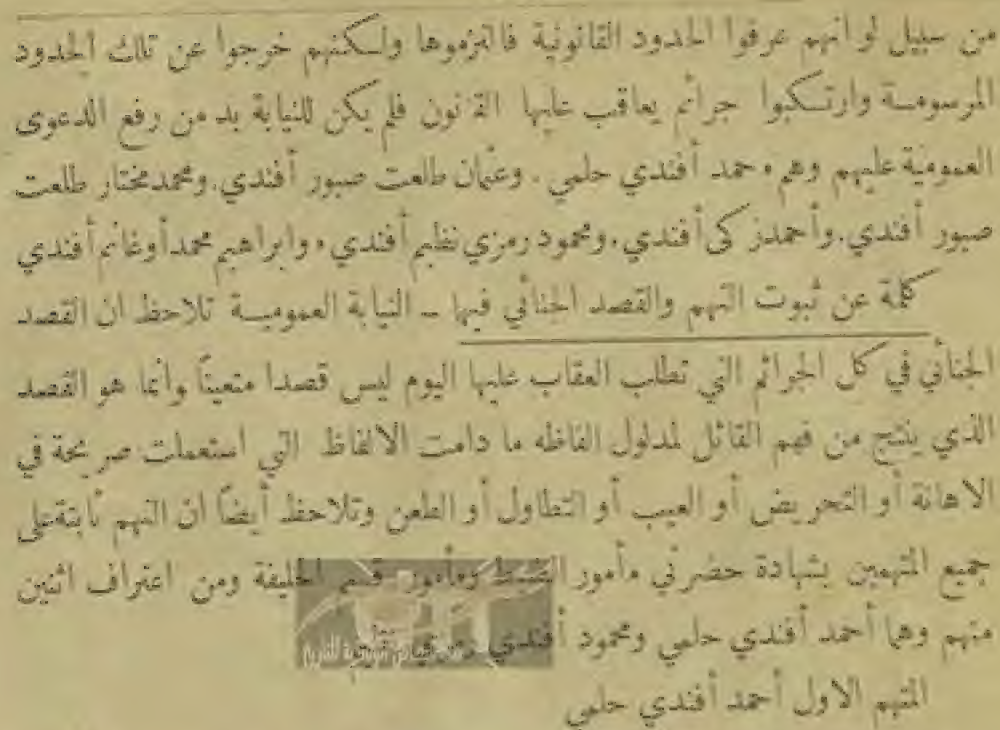 من سبيل لو انهم عرفوا الحدود القانونية فالتزموها ولكنهم خرجوا عن تلك الحدود
المرسومة وارتكبوا جرائم يعاقب عليها القانون فلم يكن للنيابة بد من رفع الدعوى
العمومية عليهم وهم حمد أفندي حلمي . وعثمان طلعت صبور أفندي . ومحمد مختار طلعت
صبور أفندي . وأحمد زكي أفندي . ومحمود رمزي نظيم أفندي . وابراهيم محمد أو غانم أفندي
كلمة عن ثبوت التهم والقصد الجنائي فيها – النيابة العمومية تلاحظ ان القصد
الجنائي في كل الجرائم التي تطلب العقاب عليها اليوم ليس قصدا متعيناً وانما هو القصد
الذي ينتج من فهم القائل لمدلول الفاظه ما دامت الالفاظ التي استعملت صريحة في
الاهانة أو التحريض أو العيب أو التطاول أو الطعن وتلاحظ أيضاً ان التهم ثابتة على
جميع المتهمين بشهادة حضرتي مأمور الضبط ومأمور قسم الخليفة ومن اعتراف اثنين
منهم وهما أحمد أفندي حلمي ومحمود أفندي
المتهم الاول أحمد أفندي حلمي